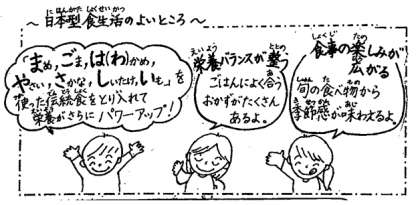 ～日本型食生活のよいところ～
「まめ，ごま，は(わ)かめ，
やさい，さかな，しいたけ，いも」を
使った伝統食をとり入れて
栄養がさらにパワーアップ！
栄養バランスが整う
ごはんによく合う
おかずがたくさん
あるよ。
食事の楽しみが
広がる
旬の食べ物から
季節感が味わえるよ。